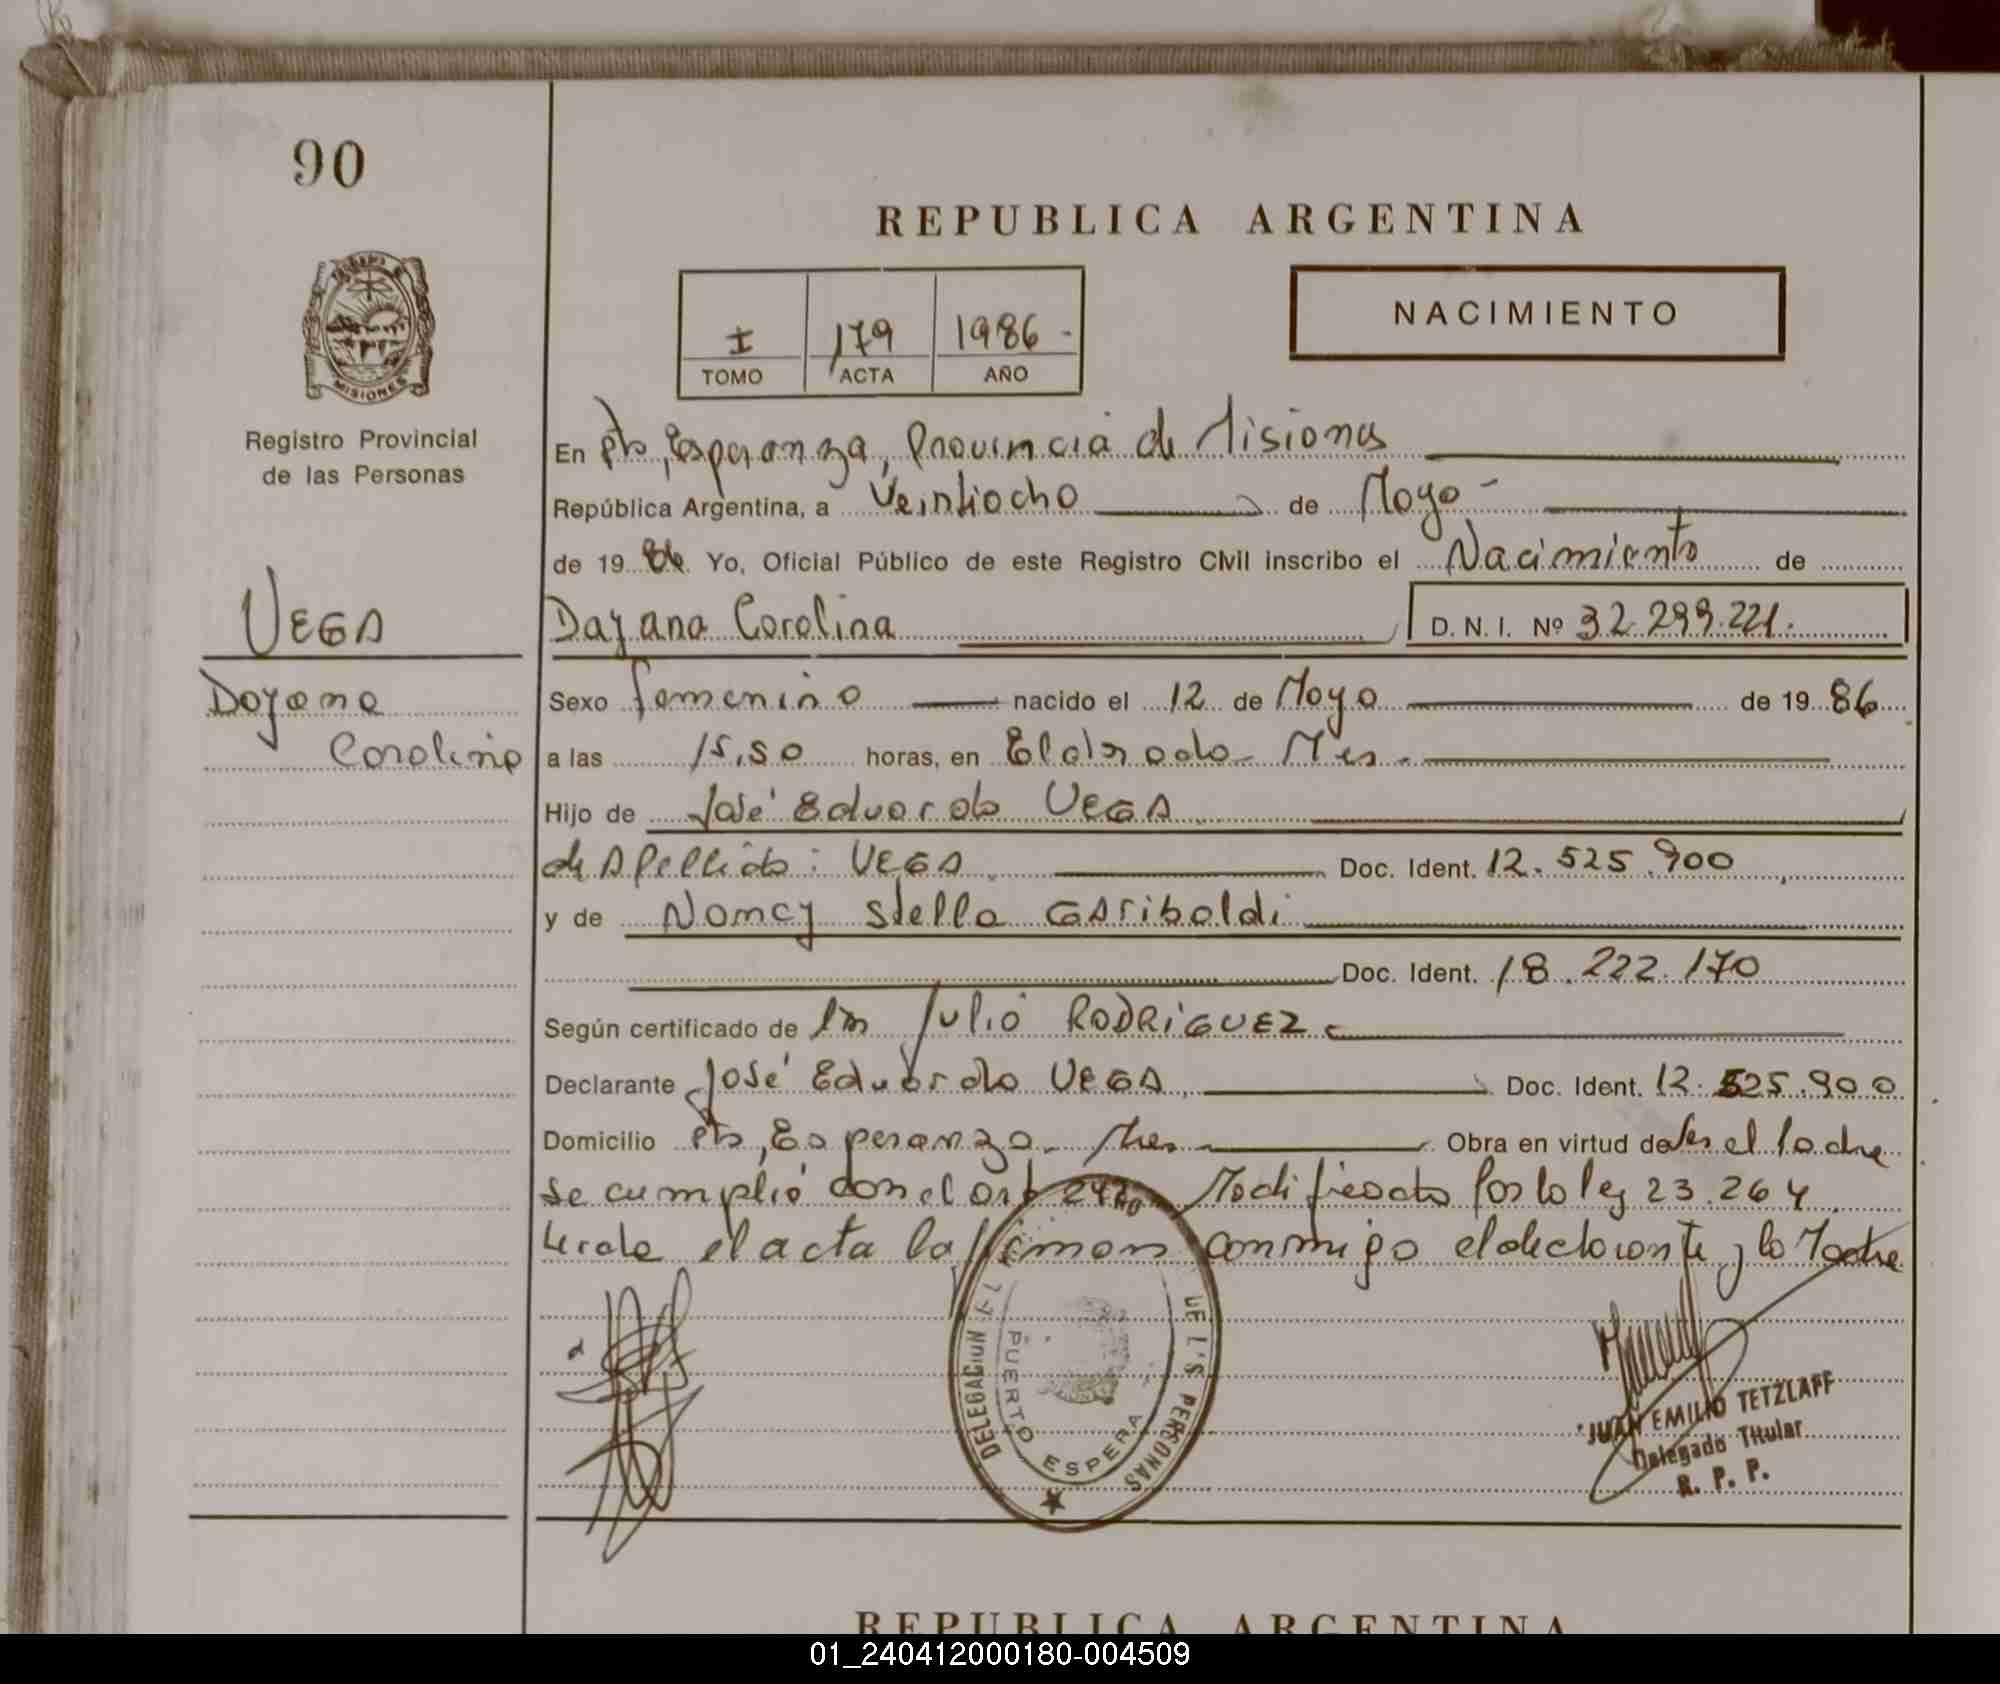 90
REPUBLICA ARGENTINA
NACIMIENTO
I 179 1986 -
TOMO ACTA AÑO
MISIONES
Registro Provincial
de las Personas
En Pto, Esperanza, Provincia de Misiones
República Argentina, a Veintiocho de Mayo -
de 19 86 Yo, Oficial Público de este Registro Civil inscribo el Nacimiento de
VEGA
Dayana Carolina D. N. I. Nº 32.299.221.
Dayana
Carolina
Sexo femenino nacido el 12 de Mayo de 19 86
a las 15,50 horas, en Eldorado - Mes.
Hijo de José Eduardo VEGA
de Apellido: VEGA Doc. Ident. 12.525.900
y de Nancy Stella GAriboldi
Doc. Ident. 18.222.170
Según certificado de Julio RODRiGUEZ
Declarante José Eduardo VEGA Doc. Ident. 12.525.900
Domicilio Pto, Esperanza - Mes Obra en virtud de Ser el Padre
Se cumplió con el art Modificado Por la ley 23.264
Leida el acta la firman conmigo el declarante y la Madre
DELEGACION
DE L'S PERSONAS
PUERTO ESPERA
JUAN EMILIO TETZLAFF
Delegado Titular
R. P. P.
REPUBLICA ARGENTINA
01_240412000180-004509